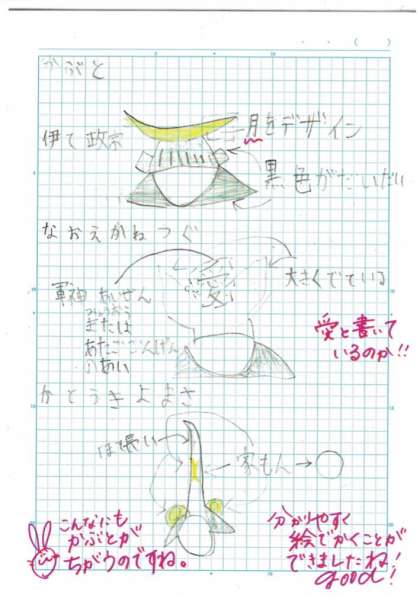 かぶと
伊て政宗
月をデザイン
黒色がだいだい
なおえかねつぐ
愛
大きくでている
軍神 あいぜん
みょうおう
または
あたごごんげん
愛と書いて
いるのか!!
かとうきよまさ
は長い
家もん→
こんなにも
かぶとが
ちがうのですね。
分かりやすく
絵でかくことが
できましたね!
good!